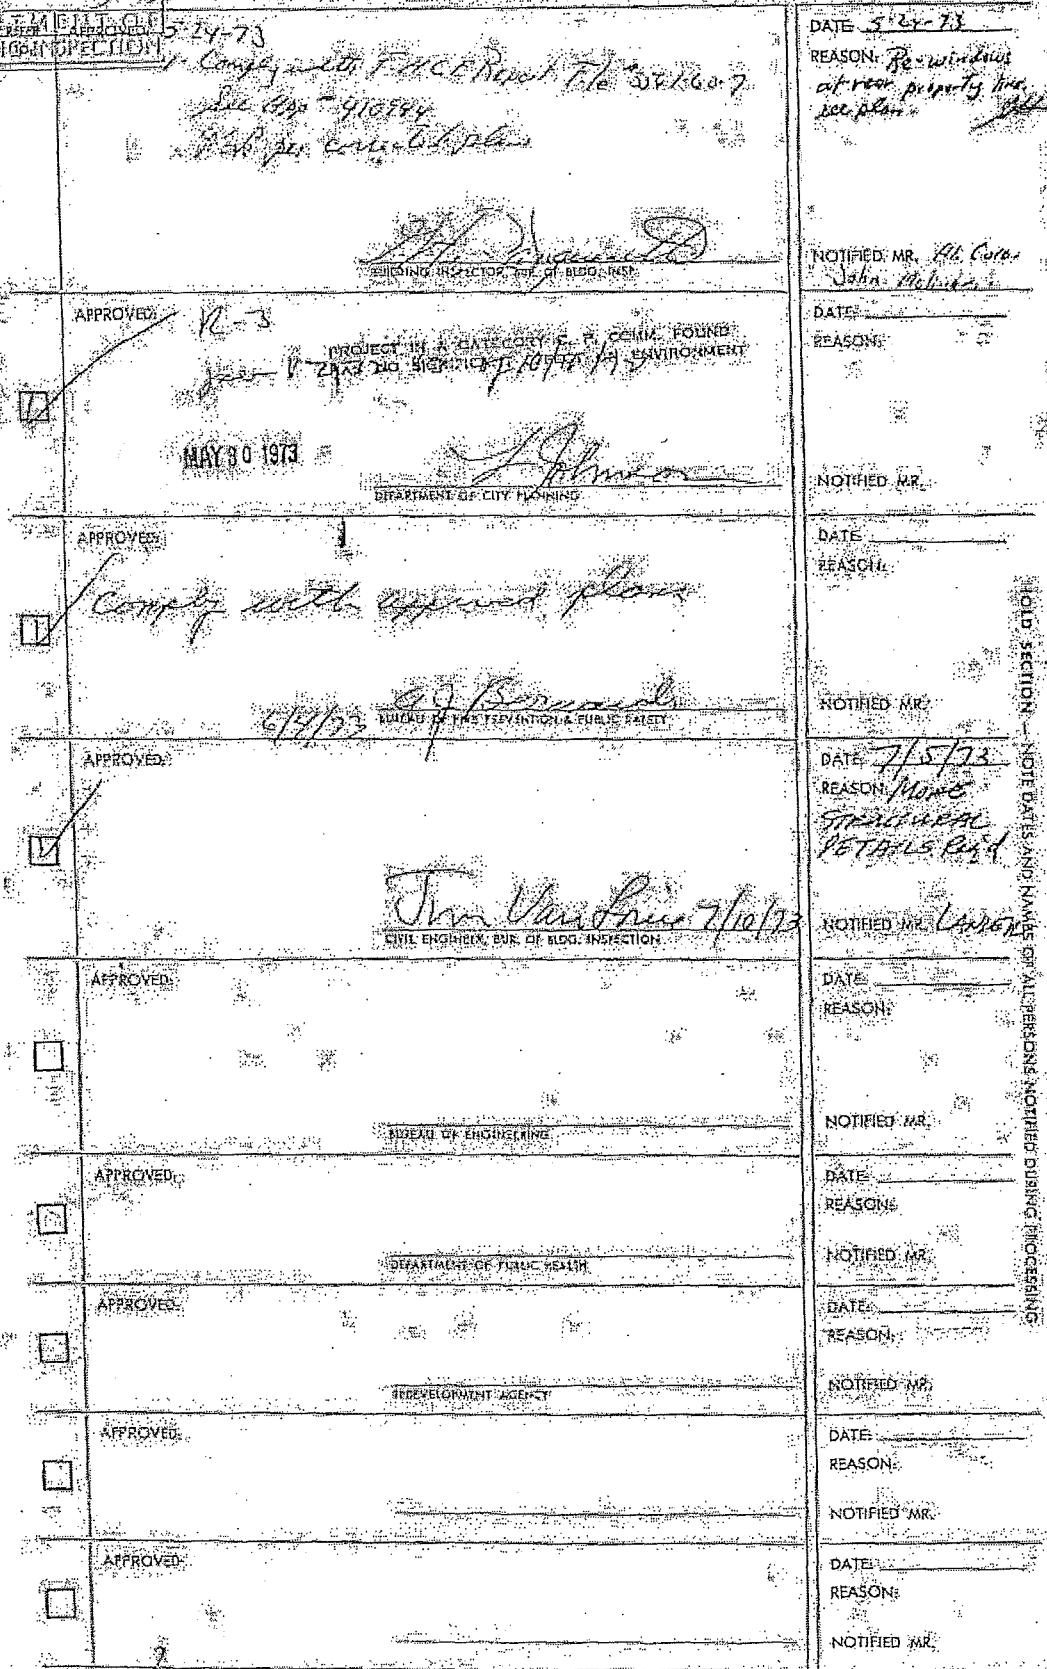 APPROVED:
INSPECTION
5-24-73
Comply with Report File
See App
per plans
BUILDING INSPECTOR, BUR. OF BLDG. INSP.
DATE: 5-24-73
REASON: Re-windows
at rear property line
see plan
NOTIFIED MR.
John
APPROVED:
R-3
PROJECT IN A CATEGORY C. P. COMM. FOUND
NO ENVIRONMENT
MAY 30 1973
L Johnson
DEPARTMENT OF CITY PLANNING
DATE:
REASON:
NOTIFIED MR.
APPROVED:
Comply with approved plans
6/4/73
BUREAU OF FIRE PREVENTION & PUBLIC SAFETY
DATE:
REASON:
NOTIFIED MR.
APPROVED:
Jim Van 7/10/73
CIVIL ENGINEER, BUR. OF BLDG. INSPECTION
DATE: 7/5/73
REASON: MORE
STRUCTURAL
DETAILS Req'd
NOTIFIED MR.
APPROVED:
BUREAU OF ENGINEERING
DATE:
REASON:
NOTIFIED MR.
APPROVED:
DEPARTMENT OF PUBLIC HEALTH
DATE:
REASON:
NOTIFIED MR.
APPROVED:
REDEVELOPMENT AGENCY
DATE:
REASON:
NOTIFIED MR.
APPROVED:
DATE:
REASON:
NOTIFIED MR.
APPROVED:
DATE:
REASON:
NOTIFIED MR.
HOLD SECTION — NOTE DATES AND NAMES OF ALL PERSONS NOTIFIED DURING PROCESSING